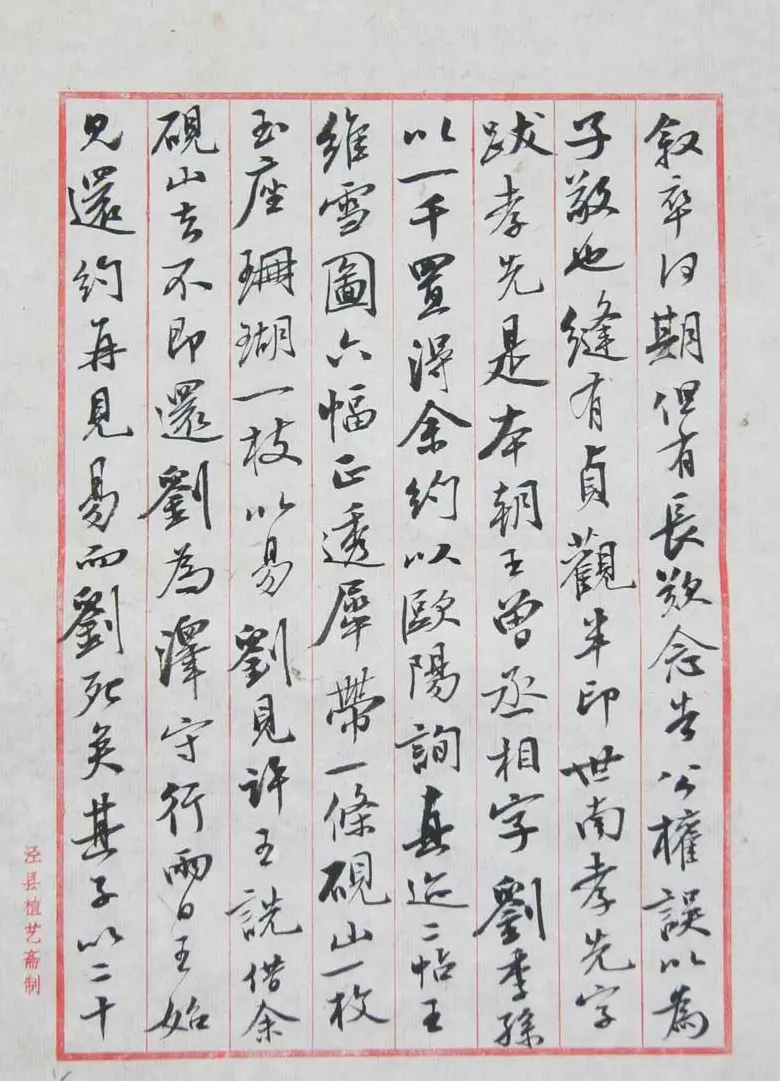 敘卒何期但有長歎念告公權誤以為
子敬也縫有貞觀半印世南孝先字
跋孝先是本朝王曾丞相字劉季孫
以一千置得余約以歐陽詢真迹二帖王
維雪圖六幅正透犀帶一條硯山一枚
玉座珊瑚一枝以易劉見許王詵借余
硯山去不即還劉為澤守行兩日王始
見還約再見易而劉死矣其子以二十
泾县植艺斋制